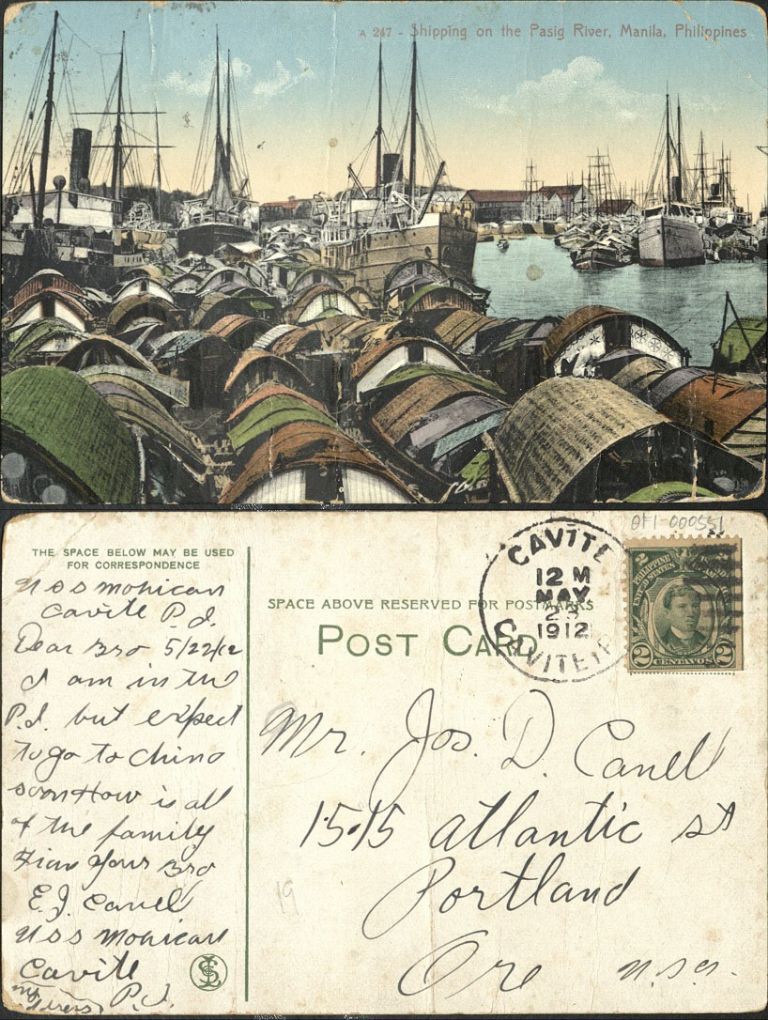 A 247 - Shipping on the Pasig River, Manila, Philippines
ΘΗ-000551
THE SPACE BELOW MAY BE USED
FOR CORRESPONDENCE
U S S Mohican
Cavite P.I.
Dear Bro 5/22/12
I am in the
P.I. but expect
to go to China
soon How is all
of the family
Your Bro
E.J. Canell
U S S Mohican
Cavite
P.I.
SPACE ABOVE RESERVED FOR POSTMARKS
POST CARD
CAVITE
12 M
MAY
23
1912
CAVITE, P.I.
2 2
PHILIPPINE ISLANDS
UNITED STATES OF AMERICA
2 CENTAVOS 2
Mr. Jos. D. Canell
1515 Atlantic st
Portland
Ore U.S.A.
19